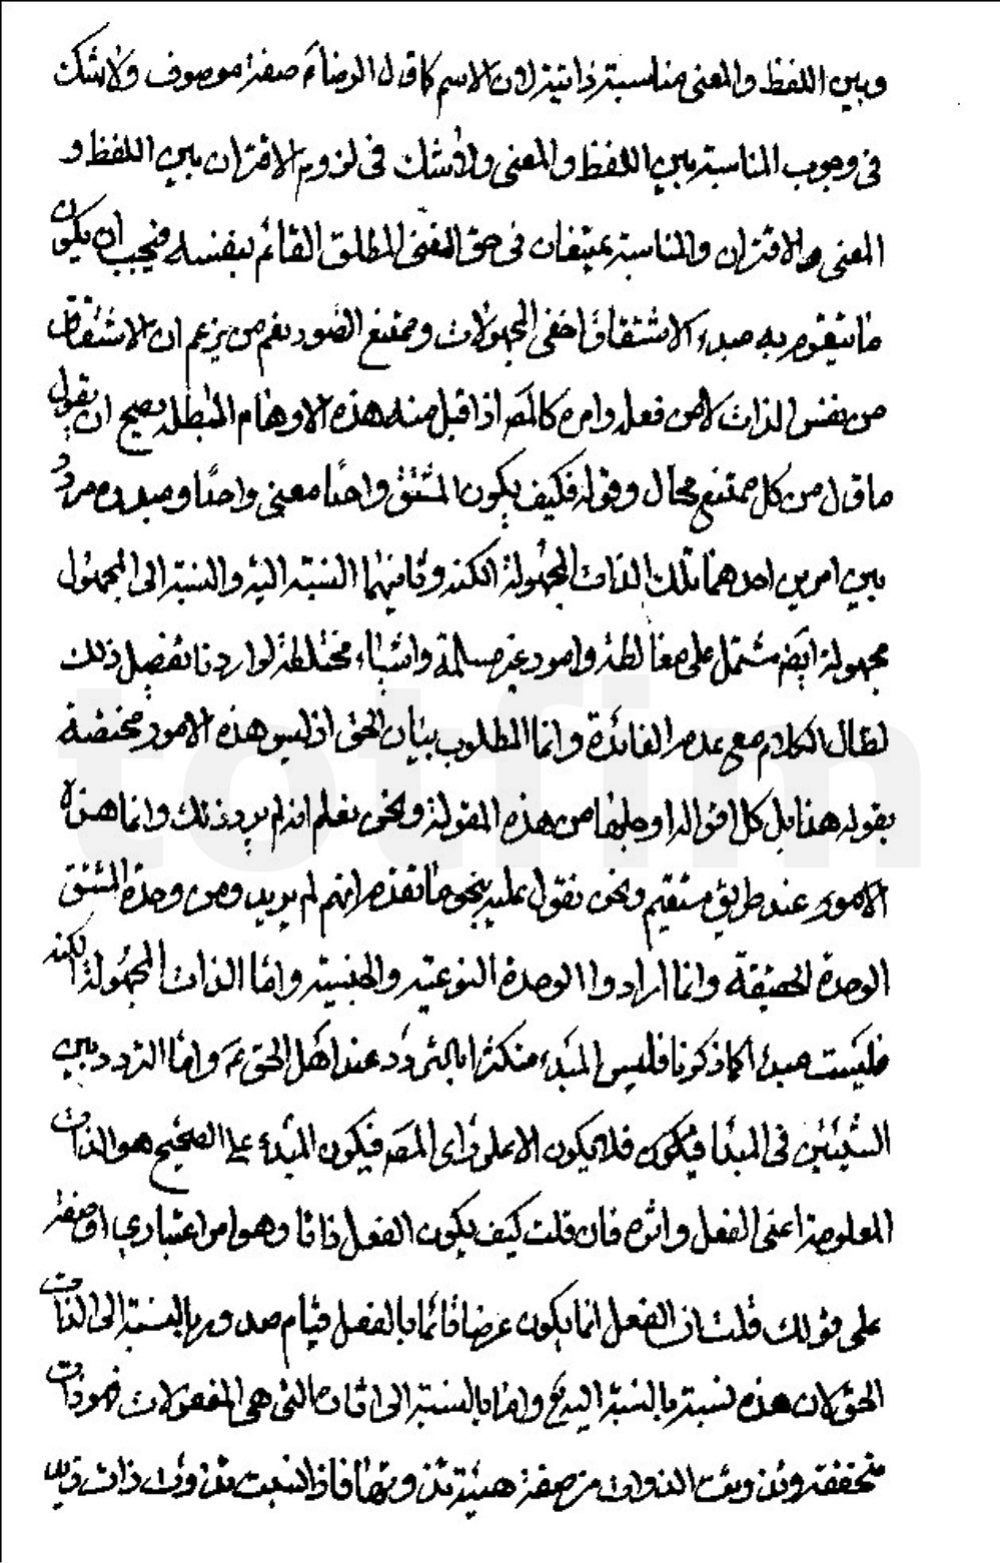 وبين اللفظ والمعنى مناسبة ذاتية لان الاسم كما قال الرضا ع صفة موصوف ولا شك
في وجوب المناسبة بين اللفظ والمعنى ولا شك في لزوم الاقتران بين اللفظ و
المعنى والاقتران والمناسبة يمتنعان في حق المعنى المطلق القائم بنفسه فيجب ان يكون
ما يتقوم به مبدء الاشتقاق اخفى المجهولات وممتنع التصور نعم من يزعم ان الاشتقاق
من نفس الذات لا من فعله وامره كالمص اذا قبل منه هذه الاوهام المبطلة يصح ان يقول
ما قال من كل ممتنع محال وقوله فكيف يكون المشتق واحدا معنى واحدا ومبدؤه مردد
بين امرين احدهما تلك الذات المجهولة الكنه وثانيهما النسبة اليه والنسبة الى المجهول
مجهولة ايضا مشتمل على مغالطة وامور غير مسلمة واشياء مختلطة لو اردنا تفصيل ذلك
لطال الكلام مع عدم الفائدة وانما المطلوب بيان الحق اذ ليس هذه الامور مختصة
بقوله هذا بل كل اقواله او جلها من هذه المقولة ونحن نعلم انه لم يرد ذلك وانما هذه
الامور عنده طريق مستقيم ونحن نقول عليه بنحو ما تقدم انهم لم يريدوا من وحدة المشتق
الوحدة الحقيقة وانما ارادوا الوحدة النوعية والجنسية واما الذات المجهولة الكنه
فليست مبدءا كما ذكرنا فليس المبدء منكثرا بالتردد عند اهل الحق ع واما التردد بين
الشيئين في المبدا فيكون فلا يكون الا على راى المص فيكون المبدء على الصحيح هو الذات
المعلومة اعنى الفعل واثره فان قلت كيف يكون الفعل ذاتا وهو امر اعتباري او صفة
على قولك قلت ان الفعل انما يكون عرضا قائما بالفصل قيام صدور بالنسبة الى الذات
الحق لان هذه نسبة بالنسبة اليه واما بالنسبة الى اثاره التي هي المفعولات فهو ذات
متحققة وتذوتت الذوات من صفة هيئة تذوتها فاذا نسبت تذوت ذات زيد